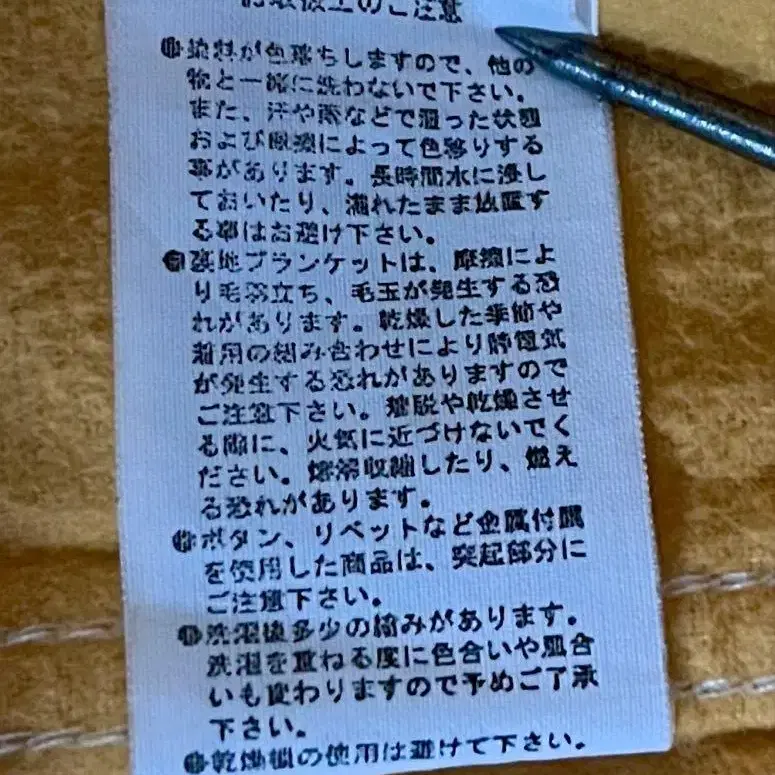 お取扱上のご注意
●染料が色落ちしますので、他の
物と一緒に洗わないで下さい。
また、汗や雨などで湿った状態
および摩擦によって色移りする
事があります。長時間水に浸し
ておいたり、濡れたまま放置す
る事はお避け下さい。
●裏地ブランケットは、摩擦によ
り毛羽立ち、毛玉が発生する恐
れがあります。乾燥した季節や
着用の組み合わせにより静電気
が発生する恐れがありますので
ご注意下さい。着脱や乾燥させ
る際に、火気に近づけないでく
ださい。溶融収縮したり、燃え
る恐れがあります。
●ボタン、リベットなど金属付属
を使用した商品は、突起部分に
ご注意下さい。
●洗濯後多少の縮みがあります。
洗濯を重ねる度に色合いや風合
いも変わりますので予めご了承
下さい。
●乾燥機の使用は避けて下さい。